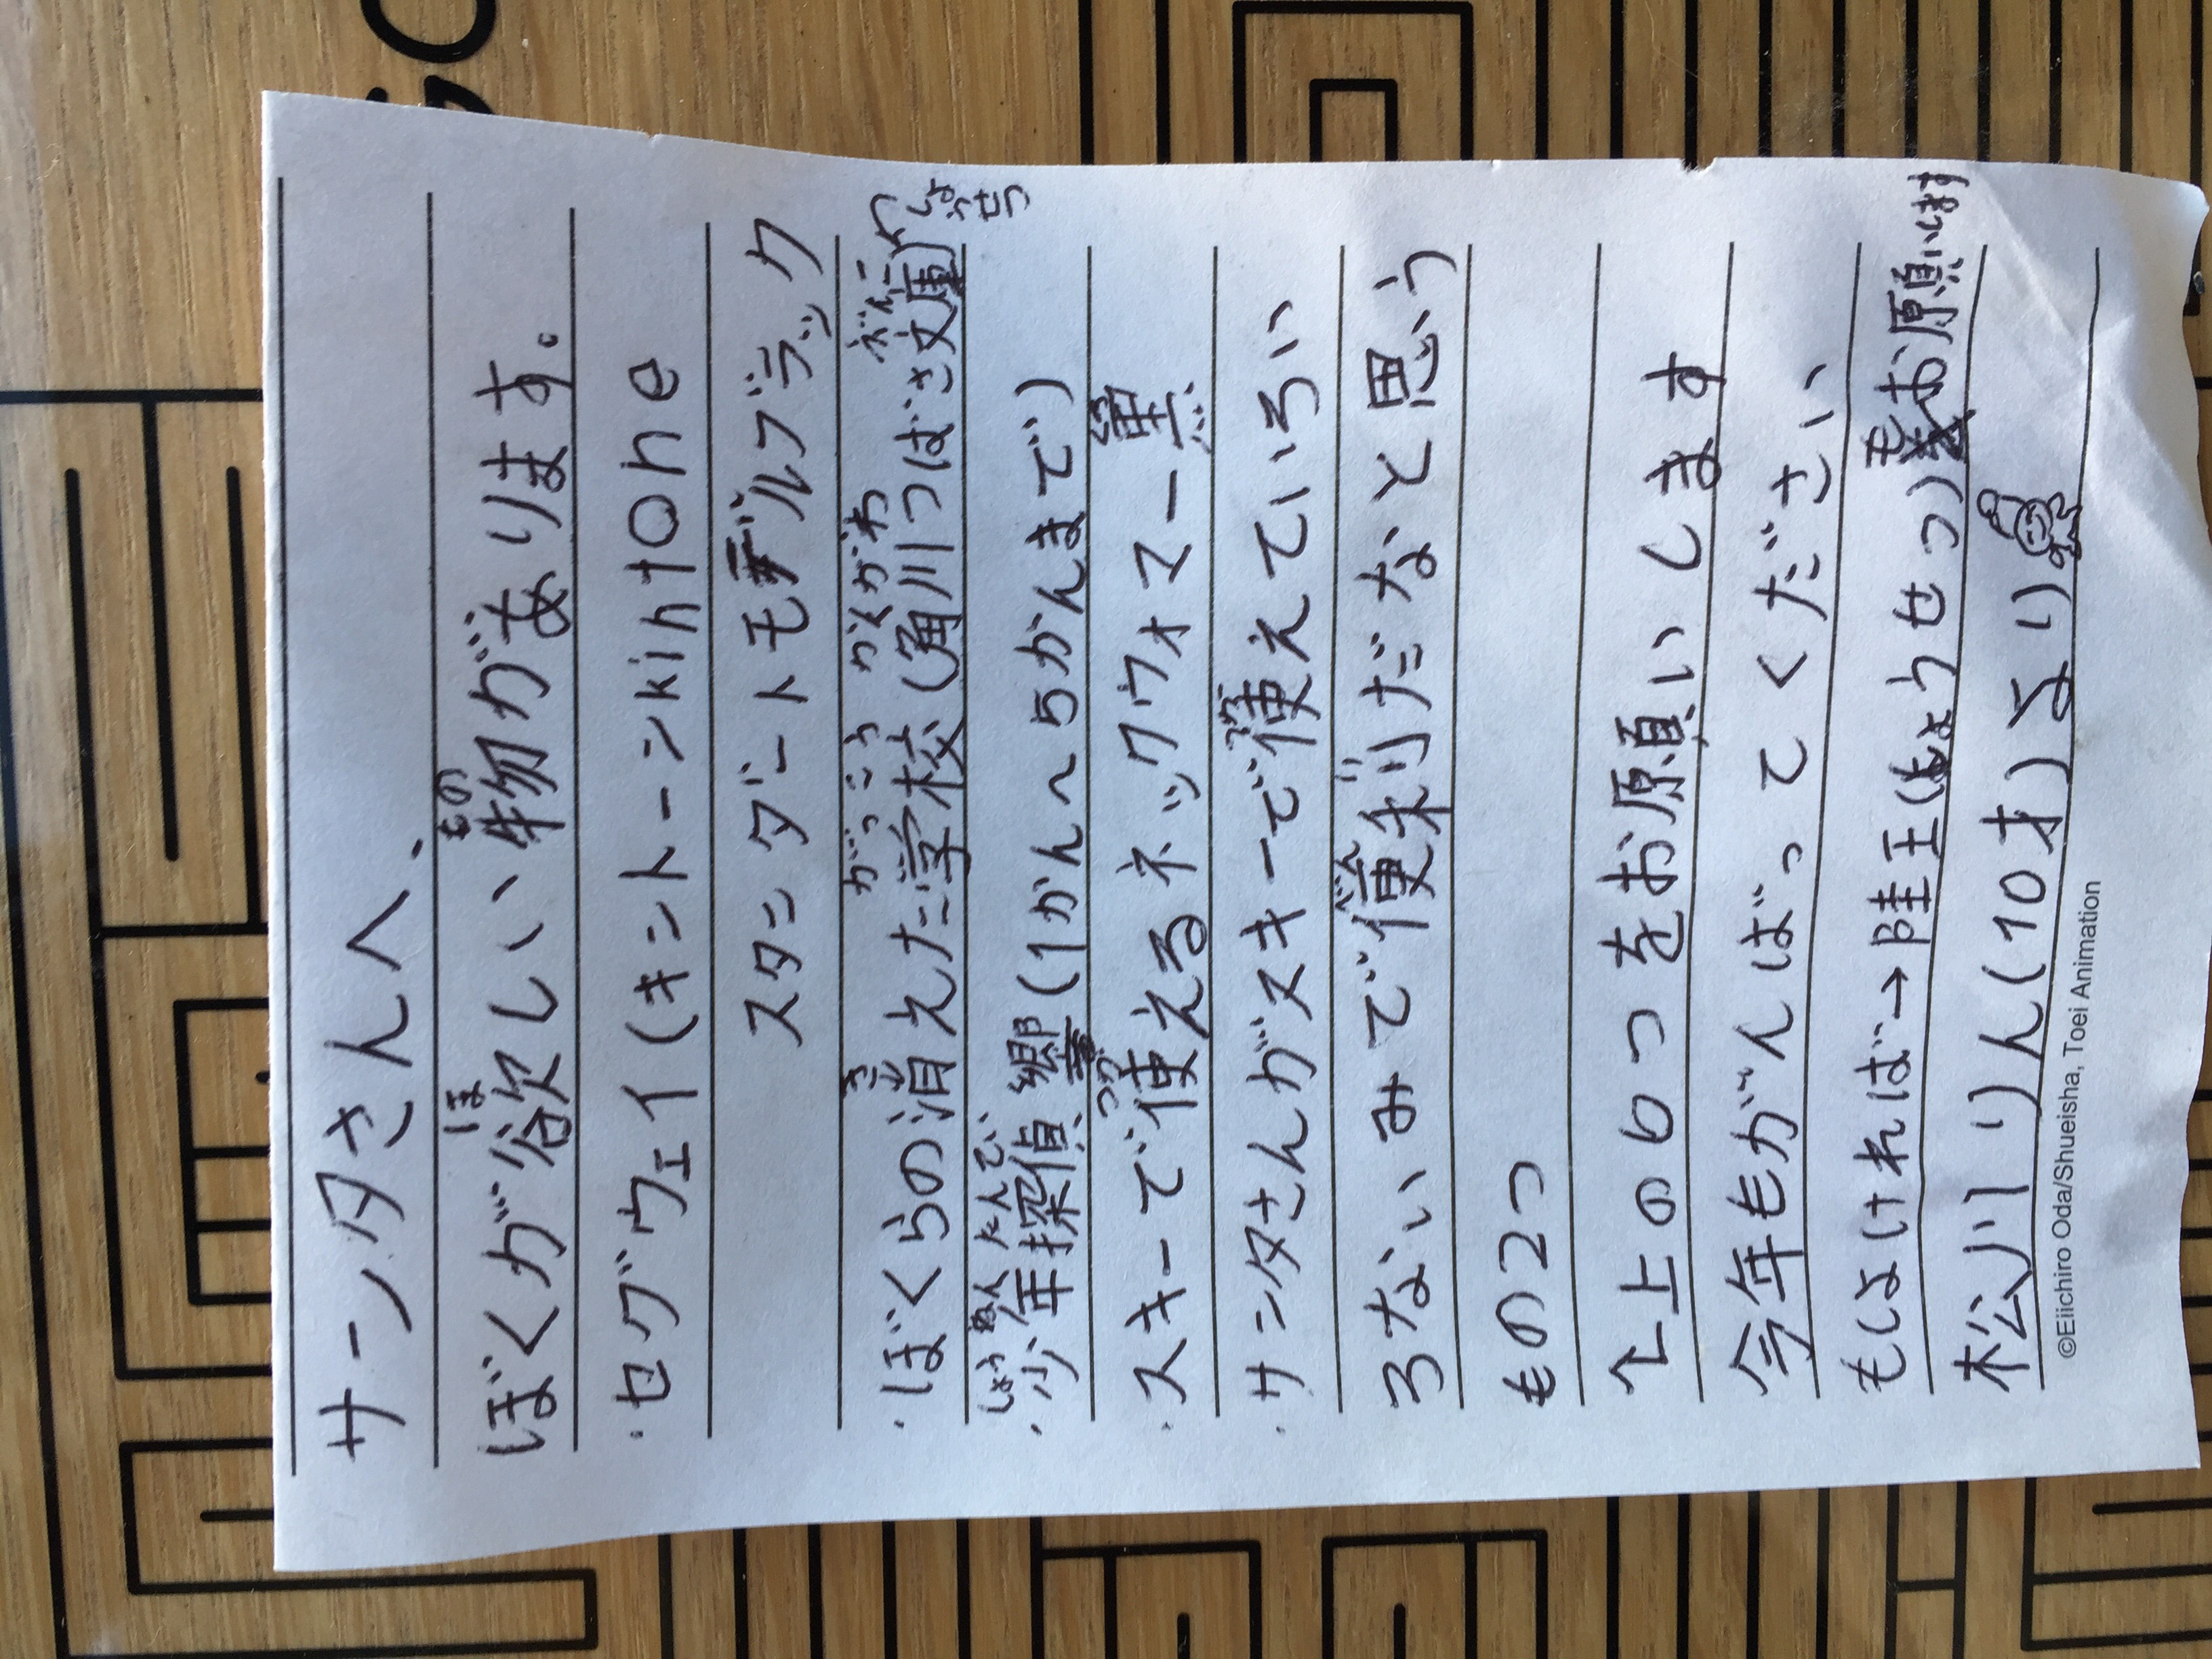 サンタさんへ、
ぼくが欲しい物があります。
・セグウェイ(キントーンkintone
スタンダートモデルブラック
・ぼくらの消えた学校(角川つばさ文庫)
・少年探偵 響(1かん〜5かんまで)
・スキーで使えるネックウォマー黒
・サンタさんがスキーで使えていい
ろないみで便利だなと思う
もの2つ
↑上の6つをお願いします
今年もがんばってください
もしよければ→陸王(しょうせつ)もお願いします
松川りん(10才)より
©Eiichiro Oda/Shueisha, Toei Animation